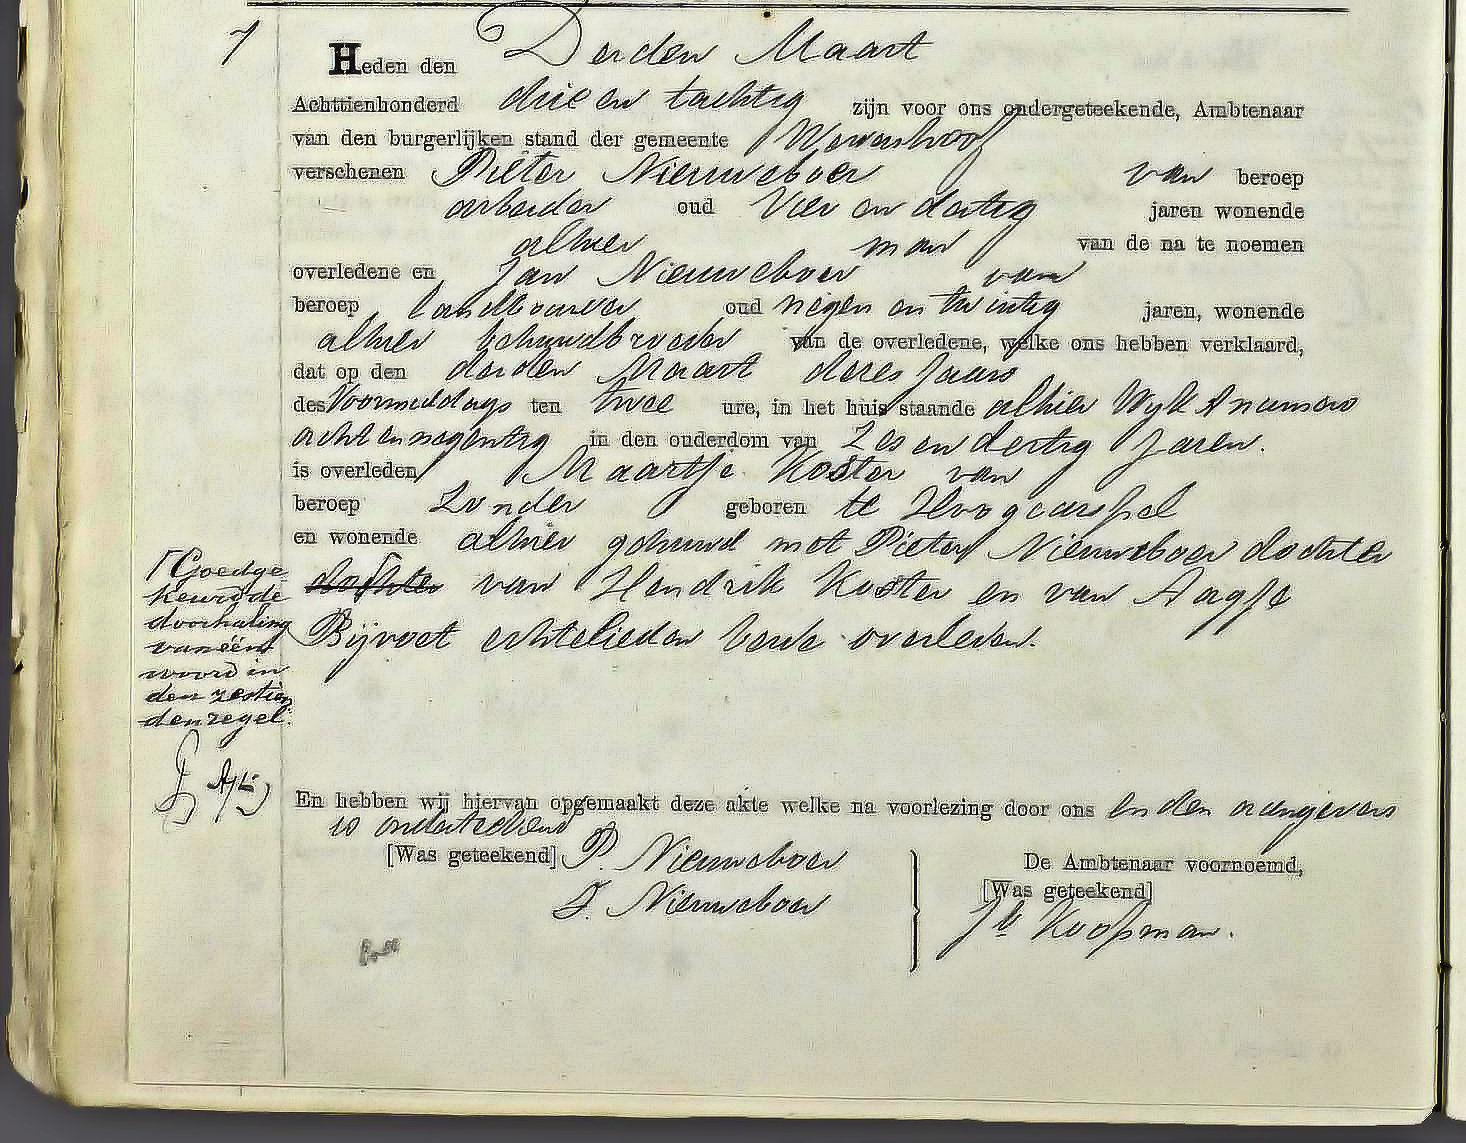 7
Heden den Derden Maart
Achttienhonderd drie en tachtig zijn voor ons ondergeteekende, Ambtenaar
van den burgerlijken stand der gemeente Wervershoof
verschenen Pieter Nieuweboer van beroep
arbeider oud Vier en dertig jaren wonende
alhier man van de na te noemen
overledene en Jan Nieuweboer van
beroep landbouwer oud negen en twintig jaren, wonende
alhier behuwdbroeder van de overledene, welke ons hebben verklaard,
dat op den derden Maart dezes Jaars
des Voormiddags ten twee ure, in het huis staande alhier Wyk A numero
acht en negentig in den ouderdom van Zes en dertig Jaren.
is overleden Maartje Koster van
beroep Zonder geboren te Hoogcarspel
en wonende alhier gehuwd met Pieter Nieuweboer dochter
dochter van Hendrik Koster en van Aagje
Bijvoet echtelieden beide overleden.
Goedge-
keurd de
doorhaling
van één
woord in
den zestien
den regel.
En hebben wij hiervan opgemaakt deze akte welke na voorlezing door ons en den aangevers
is onderteekend
[Was geteekend] P. Nieuweboer
J. Nieuweboer
De Ambtenaar voornoemd,
[Was geteekend]
Jb Koopman.